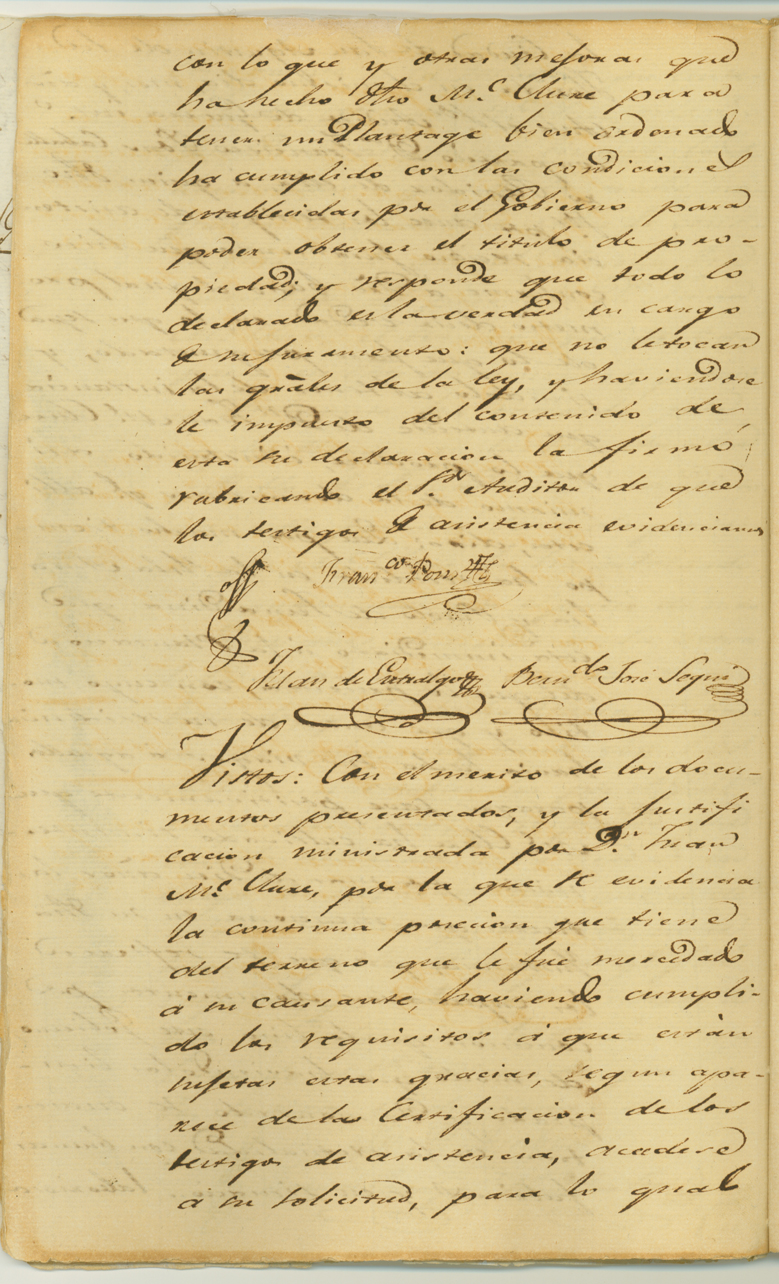 con lo que y otras mejoras que
ha hecho dho Mc. Clure para
tener un Plantage bien ordenado
ha cumplido con las condiciones
establecidas por el Gobierno para
poder obtener el titulo de pro-
piedad; y responde que todo lo
declarado es la verdad en cargo
de su juramento: que no le tocan
las grāles de la ley, y haviendose
le impuesto del contenido de
esta su declaracion la firmó,
rubricando el Sor. Auditor de que
los testigos de asistencia evidenciamos
Franco.
Juan de Entralgo Berndo. José Segui
Vistos: Con el merito de los docu-
mentos presentados, y la justifi
cacion ministrada por Dn. Juan
Mc. Clure, por la que se evidencia
la continua posecion que tiene
del terreno que le fué mercedado
á su causante, haviendo cumpli-
do los requisitos á que están
sujetas estas gracias, segun apa-
rece de la Certificacion de los
testigos de asistencia, accedese
á su solicitud, para lo qual